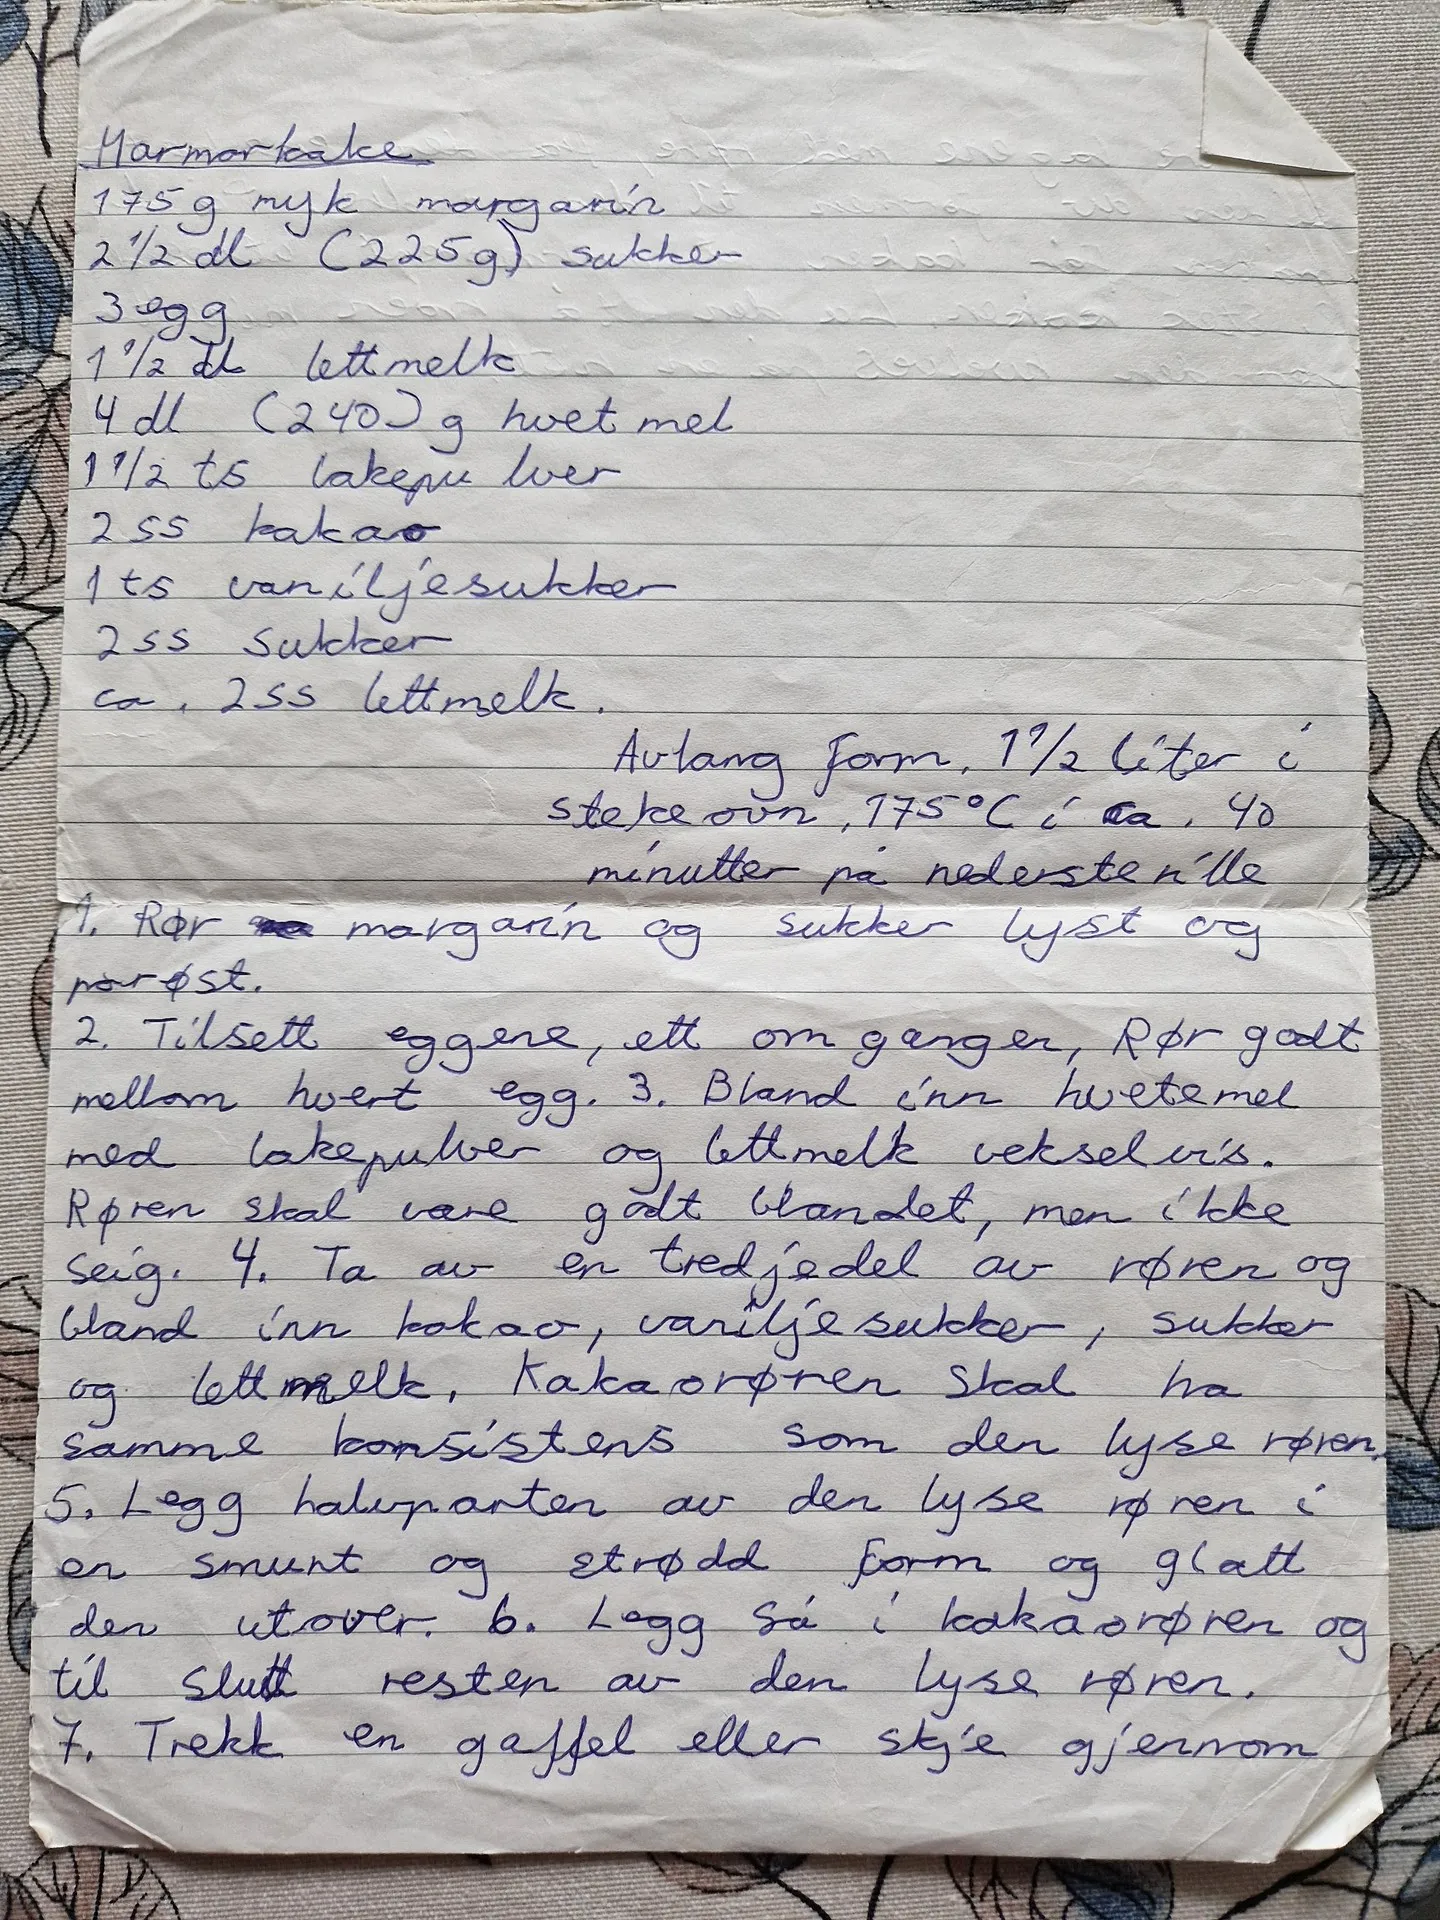 Marmorkake
175 g myk margarin
2 1/2 dl (225g) sukker
3 egg
1 1/2 dl lettmelk
4 dl (240) g hvetmel
1 1/2 ts bakepulver
2 ss kakao
1 ts vaniljesukker
2 ss sukker
ca. 2 ss lettmelk.
Avlang form. 1 1/2 liter i
stekeovn, 175°C i ca. 40
minutter på nederste rille
1. Rør margarin og sukker lyst og
porøst.
2. Tilsett eggene, ett om gangen, Rør godt
mellom hvert egg. 3. Bland inn hvetemel
med bakepulver og lettmelk vekselvis.
Røren skal være godt blandet, men ikke
seig. 4. Ta av en tredjedel av røren og
bland inn kakao, vaniljesukker, sukker
og lettmelk. Kakaorøren skal ha
samme konsistens som den lyse røren.
5. Legg halvparten av den lyse røren i
en smurt og strødd form og glatt
den utover. 6. Legg så i kakaorøren og
til slutt resten av den lyse røren.
7. Trekk en gaffel eller skje gjennom